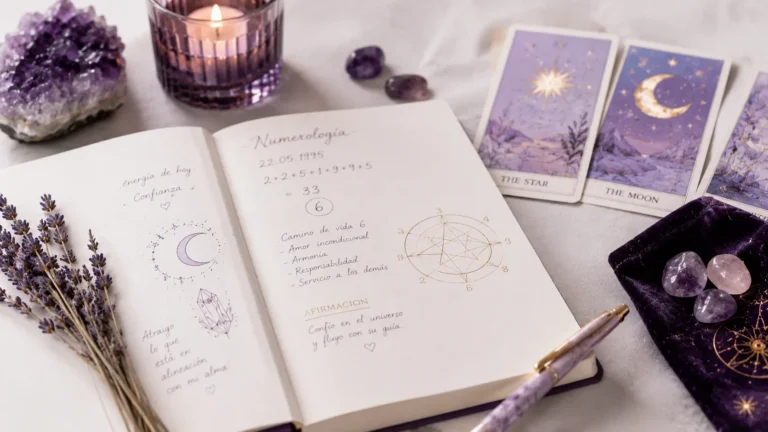 energía de hoy
- Confianza -
Atraigo
lo que
está en
alineación
con mi alma
Numerología
22.05.1995
2+2+5+1+9+9+5
= 33
6
Camino de vida 6
- Amor incondicional
- Armonía
- Responsabilidad
- Servicio a los demás
AFIRMACION
Confío en el universo
y fluyo con su guía.
3
4
5
8
6
2
8
3
THE STAR
THE MOON